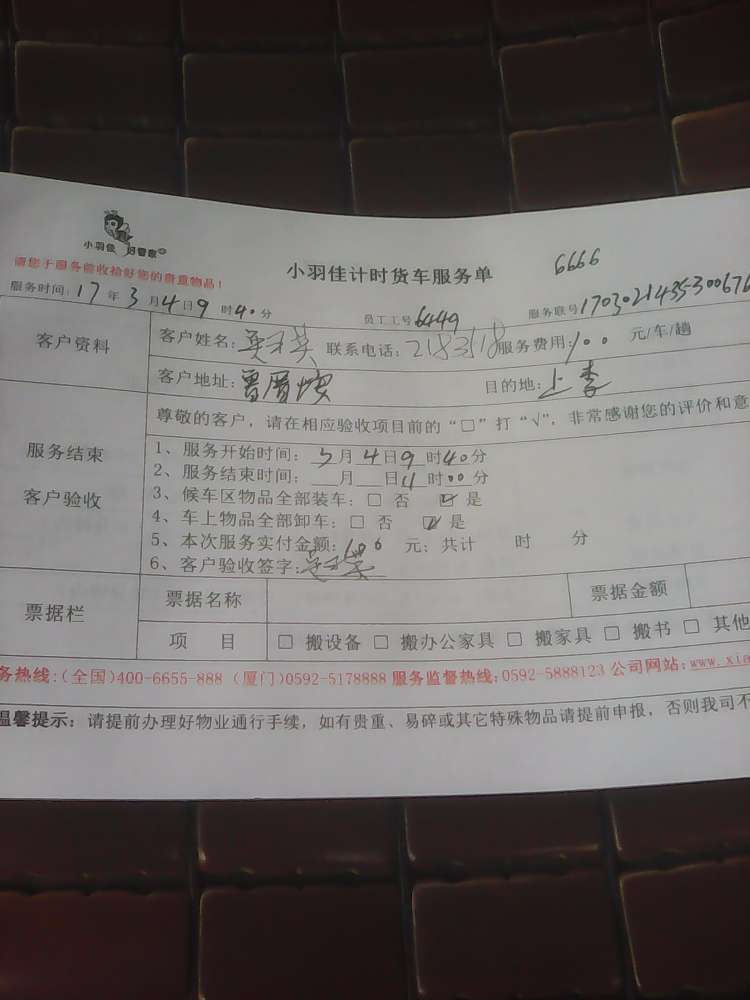 小羽佳 好管家
小羽佳计时货车服务单
6666
请您于服务前收拾好您的贵重物品！
服务时间：17年3月4日9时40分 员工工号6449 服务联号
客户资料
客户姓名： 联系电话：2183518 服务费用：100 元/车/趟
客户地址：曾厝垵 目的地：上李
尊敬的客户，请在相应验收项目前的“□”打“√”，非常感谢您的评价和意
服务结束
客户验收
1、服务开始时间：3月4日9时40分
2、服务结束时间：__月__日11时00分
3、候车区物品全部装车：□ 否 ☑ 是
4、车上物品全部卸车：□ 否 ☑ 是
5、本次服务实付金额：100 元；共计 时 分
6、客户验收签字：
票据栏
票据名称 票据金额
项 目 □ 搬设备 □ 搬办公家具 □ 搬家具 □ 搬书 □ 其他
务热线：(全国)400-6655-888 (厦门)0592-5178888 服务监督热线：0592-5888123 公司网站：www.xia
温馨提示：请提前办理好物业通行手续，如有贵重、易碎或其它特殊物品请提前申报，否则我司不